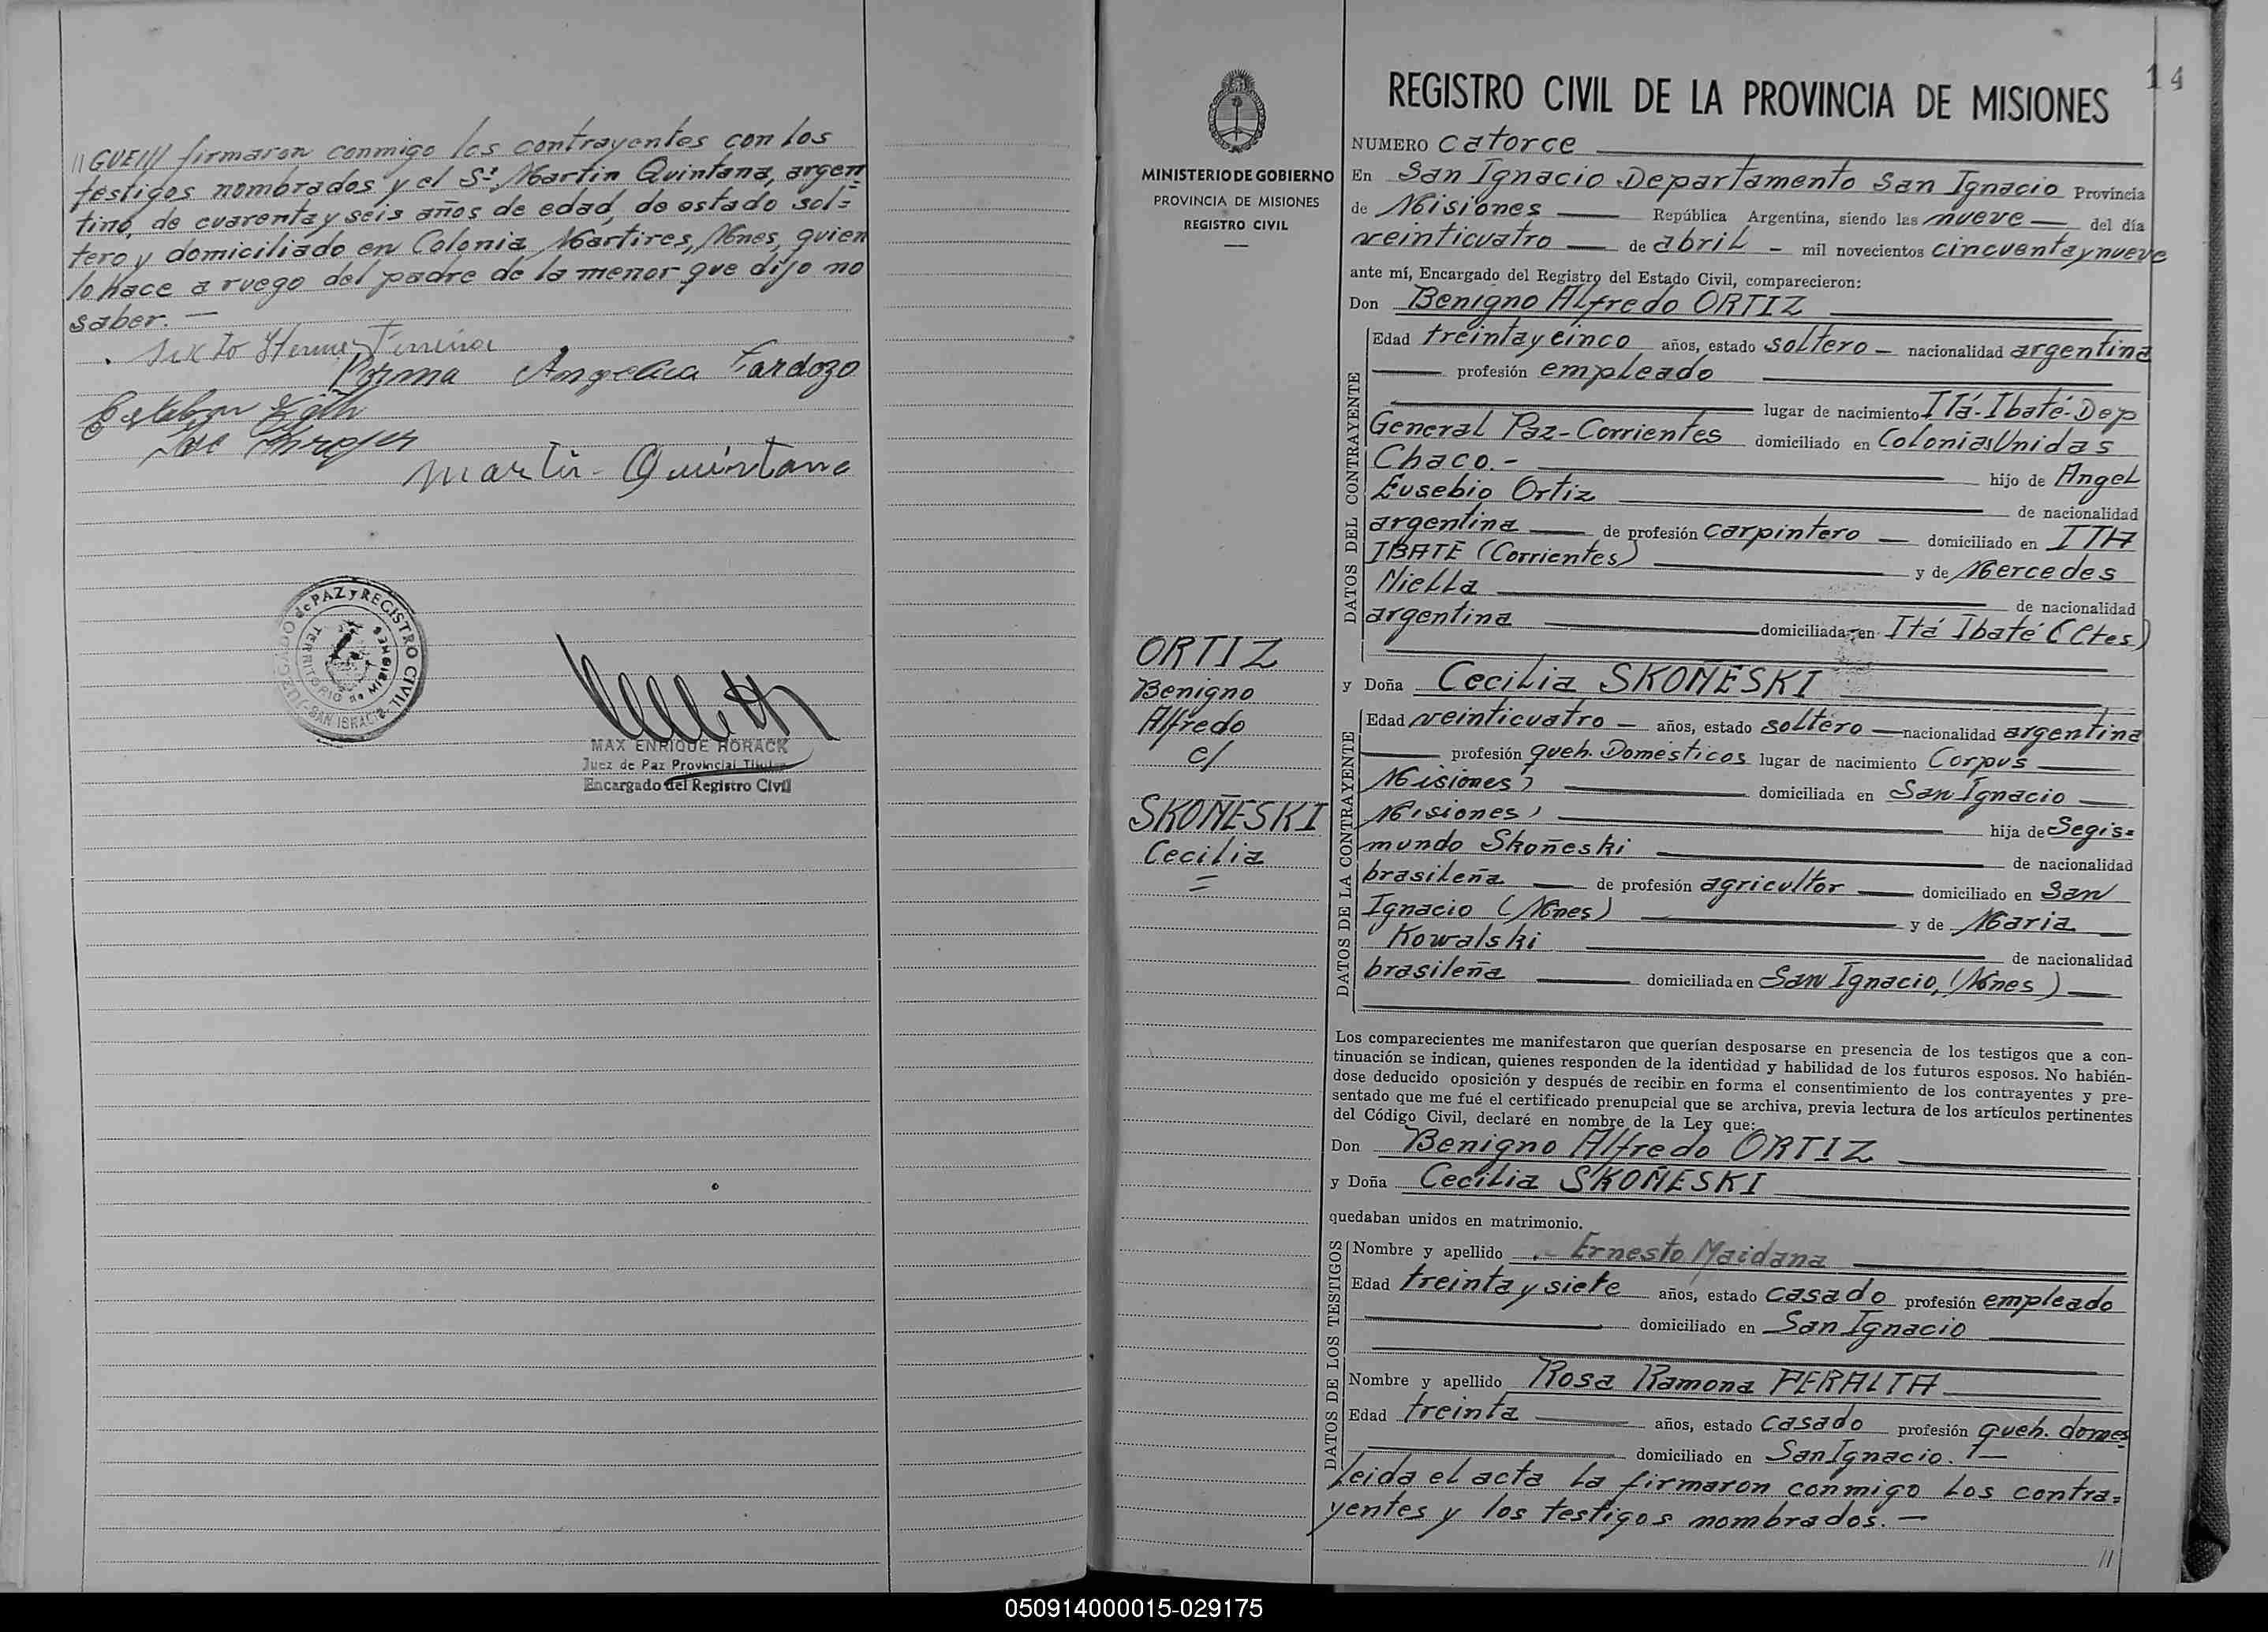 //GUE/// firmaron conmigo los contrayentes con los
testigos nombrados y el Sr. Martin Quintana, argen=
tino, de cuarenta y seis años de edad, de estado sol=
tero y domiciliado en Colonia Mártires, Mnes, quien
lo hace a ruego del padre de la menor que dijo no
saber. —
Sixto
Norma Angelica Cardozo
Esteban
Martin Quintana
JUZGADO de PAZ y REGISTRO CIVIL
TERRITORIO DE MISIONES
SAN IGNACIO
MAX ENRIQUE HORACK
Juez de Paz Provincial Titular
Encargado del Registro Civil
14
REGISTRO CIVIL DE LA PROVINCIA DE MISIONES
MINISTERIO DE GOBIERNO
PROVINCIA DE MISIONES
REGISTRO CIVIL
ORTIZ
Benigno
Alfredo
c/
SKOÑESKI
Cecilia
=
NUMERO catorce
En San Ignacio Departamento San Ignacio Provincia
de Misiones — República Argentina, siendo las nueve — del día
veinticuatro — de abril - mil novecientos cincuenta y nueve
ante mí, Encargado del Registro del Estado Civil, comparecieron:
Don Benigno Alfredo ORTIZ
DATOS DEL CONTRAYENTE
Edad treinta y cinco años, estado soltero — nacionalidad argentina
— profesión empleado
lugar de nacimiento Itá-Ibaté-Dep
General Paz-Corrientes domiciliado en Colonias Unidas
Chaco.- hijo de Angel
Eusebio Ortiz de nacionalidad
argentina — de profesión carpintero — domiciliado en ITA
IBATE (Corrientes) y de Mercedes
Niella de nacionalidad
argentina domiciliada en Itá Ibaté (Ctes)
y Doña Cecilia SKOÑESKI
DATOS DE LA CONTRAYENTE
Edad veinticuatro — años, estado soltero — nacionalidad argentina
— profesión queh. Domésticos lugar de nacimiento Corpus —
Misiones) domiciliada en San Ignacio —
Misiones) hija de Segis=
mundo Skoñeski de nacionalidad
brasileña — de profesión agricultor — domiciliado en San
Ignacio (Mnes) y de Maria —
Kowalski de nacionalidad
brasileña — domiciliada en San Ignacio, (Mnes) —
Los comparecientes me manifestaron que querían desposarse en presencia de los testigos que a con-
tinuación se indican, quienes responden de la identidad y habilidad de los futuros esposos. No habién-
dose deducido oposición y después de recibir en forma el consentimiento de los contrayentes y pre-
sentado que me fué el certificado prenupcial que se archiva, previa lectura de los artículos pertinentes
del Código Civil, declaré en nombre de la Ley que:
Don Benigno Alfredo ORTIZ
y Doña Cecilia SKOÑESKI
quedaban unidos en matrimonio.
DATOS DE LOS TESTIGOS
Nombre y apellido Ernesto Maidana
Edad treinta y siete años, estado casado profesión empleado
domiciliado en San Ignacio
Nombre y apellido Rosa Ramona PERALTA
Edad treinta años, estado casado profesión queh. domes
domiciliado en San Ignacio. —
Leida el acta la firmaron conmigo los contra=
yentes y los testigos nombrados. —
//
050914000015-029175